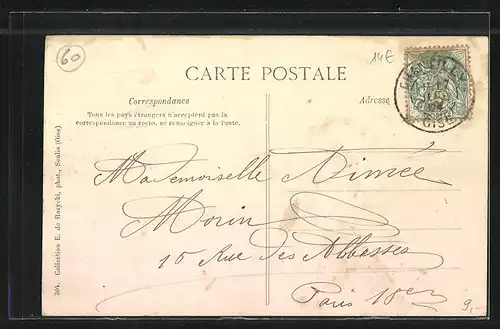 60
14€
CARTE POSTALE
Correspondance
Adresse
Tous les pays étrangers n'acceptent pas la
correspondance au recto, se renseigner à la Poste.
Mademoiselle Aimée
Morin
10 Rue des Abbesses
Paris 18em
9.-
394. Collection E. de Rozycki, phot., Senlis (Oise)